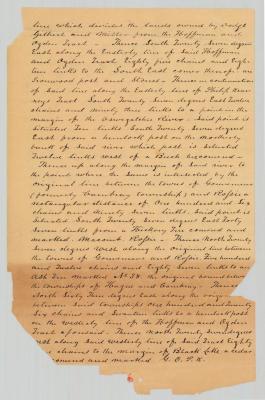 line which divides the lands owned by
Gilbert and Miller from the Hoffman and
Ogden Tract. Thence South Twenty Seven degrees
East along the Easterly line of said Hoffman
and Ogden Tract Eighty five chains and Eight
links to the South East corner thereof an
Ironwood post and Stones - Thence a continuation
of said line along the Easterly line of Philip
East South Twenty Seven degrees East Twelve
chains and ninety three links to a point in the
margin of the Oswegatchie River - Said point is
situated Ten links South Twenty Seven degrees
East from a hemlock post on the northerly
bank of said river which post is situated
Twelve links west of a Birch
Thence up along the margin of said river to
the point where the same is intersected by the
original line between the towns of Gouverneur
(formerly Cambray township) and Rossie a
rectangular distance of One hundred and Six
chains and Ninety Seven links. Said point is
situated South Twenty Seven degrees East Forty
Seven links from a Hickory Tree and
marked Macomb Rossie - Thence North Twenty
Seven degrees West along the original line between
the towns of Gouverneur and Rossie Two hundred
and Twelve chains and Eighty Seven links to an
Ash Tree marked No 58 the original bound between
the townships of Hague and Cambray - Thence
North Sixty Three degrees East along the
between said townships One hundred and Twenty
Six chains and Seventeen links to a hemlock post
on the westerly line of the Hoffman and Ogden
Tract aforesaid - Thence North Twenty Seven degrees
West along said westerly line of said Tract Eighty
chains to the margin of Black Lake a cedar
and marked G. C. P. K.